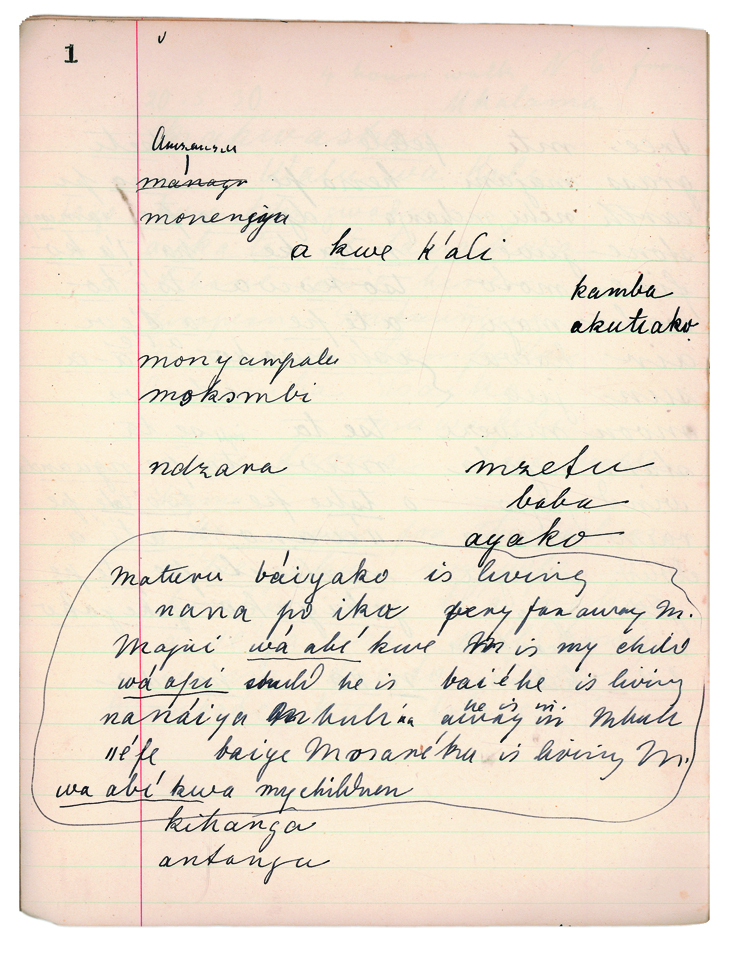 1
monenjga
a kwe k'ali
kamba
akutiako
monyampala
mokombi
ndzara mzetu
baba
ayako
maturu báiyako is living
nana po iko very far away M.
Majui wá abí kwe is my child
wá api he is baiéhe is living
nanáiya he is in
away in
iiéfe baiye is living M.
wa abí kwa my children
kihanga
antanga